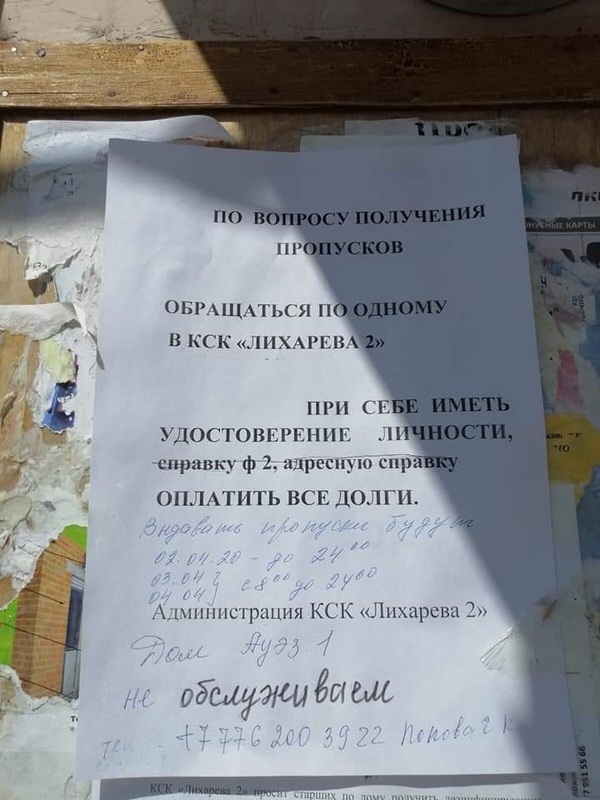 ПО ВОПРОСУ ПОЛУЧЕНИЯ
ПРОПУСКОВ
ОБРАЩАТЬСЯ ПО ОДНОМУ
В КСК «ЛИХАРЕВА 2»
ПРИ СЕБЕ ИМЕТЬ
УДОСТОВЕРЕНИЕ ЛИЧНОСТИ,
справку ф 2, адресную справку
ОПЛАТИТЬ ВСЕ ДОЛГИ.
Выдавать пропуски будут
02.04.20 - до 24 00
03.04 } с 8 00 до 24 00
04.04 }
Администрация КСК «Лихарева 2»
Дом Ауэз. 1
не обслуживаем
тел. +7 776 200 39 22 Попова Г. К
КСК «Лихарева 2» просит старших по дому получить